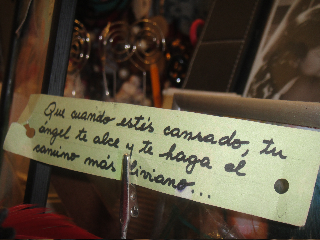 Que cuando estés cansado, tu
ángel te alce y te haga el
camino más liviano...